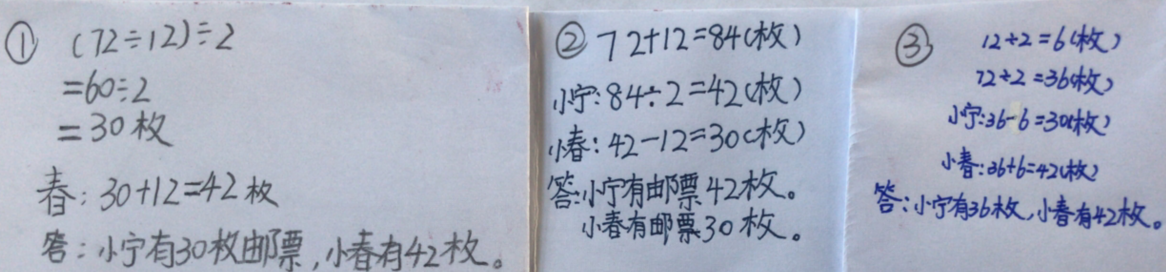 ① (72÷12)÷2
=60÷2
=30枚
春：30+12=42枚
答：小宁有30枚邮票，小春有42枚。
② 72+12=84(枚)
小宁：84÷2=42(枚)
小春：42-12=30(枚)
答：小宁有邮票42枚。
小春有邮票30枚。
③ 12÷2=6(枚)
72÷2=36(枚)
小宁：36-6=30(枚)
小春：36+6=42(枚)
答：小宁有36枚，小春有42枚。